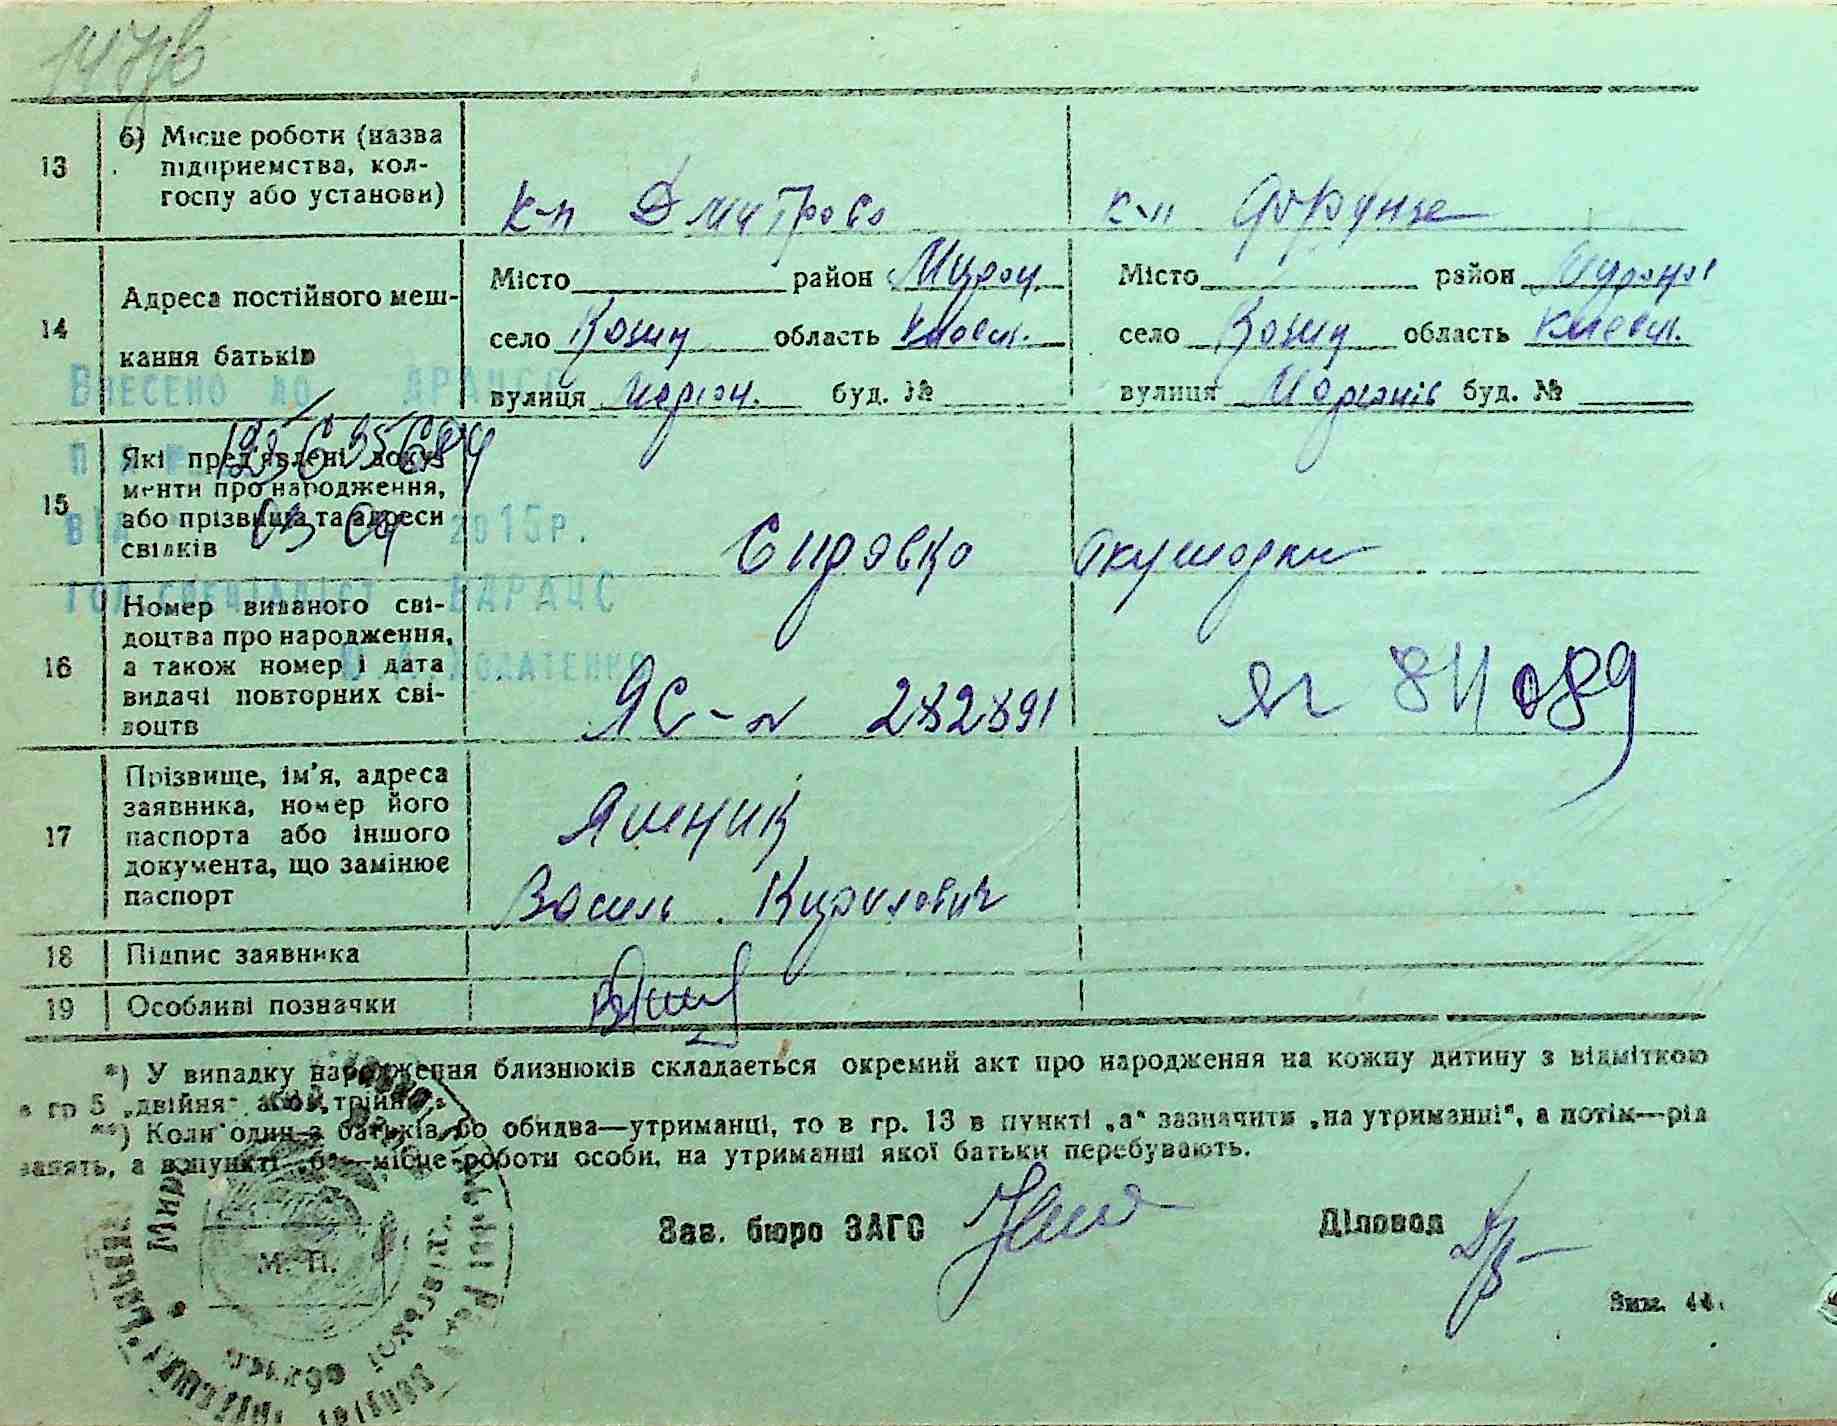 13
б) Місце роботи (назва
підприємства, кол-
госпу або установи)
к-п Дмитрова
к-п Фрунзе
14
Адреса постійного меш-
кання батьків
Місто район Мирон.
село Козин область Київськ.
вулиця буд. №
Місто район
село Козин область Київськ.
вулиця буд. №
Внесено до ДРАЦС
15
Які пред'явлені доку-
менти про народження,
або прізвища та адреси
свідків
від 03 09 2015р.
Гол.спеціаліст ВДРАЦС
Ю.А.
Єидовка Окушорки
16
Номер виданого сві-
доцтва про народження,
а також номер і дата
видачі повторних сві-
доцтв
ЯС-№ 282891
811089
17
Прізвище, ім'я, адреса
заявника, номер його
паспорта або іншого
документа, що замінює
паспорт
Яшник
Василь Кирилович
18
Підпис заявника
19
Особливі позначки
*) У випадку народження близнюків складається окремий акт про народження на кожну дитину з відміткою
в гр 5 „двійня“ або „трійня“.
**) Коли один з батьків бо обидва—утриманці, то в гр. 13 в пункті „а“ зазначити „на утриманні“, а потім—рід
занять, а в пункті „б“—місце роботи особи, на утриманні якої батьки перебувають.
Зав. бюро ЗАГС
Діловод
М. П.
Зам. 44.